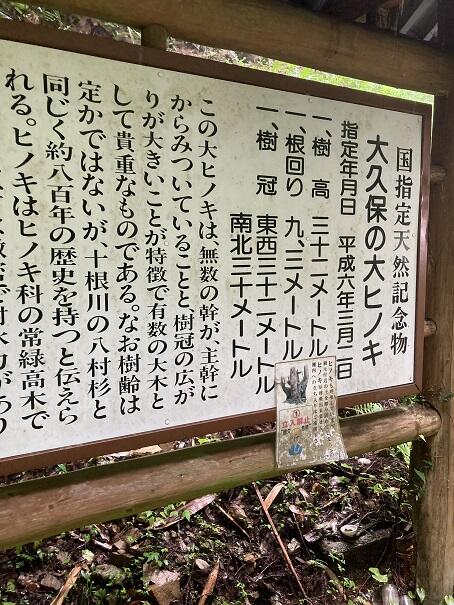 国指定天然記念物
大久保の大ヒノキ
指定年月日 平成六年三月二日
一、樹高 三十二メートル
一、根回り 九、三メートル
一、樹冠 東西三十二メートル
南北三十メートル
この大ヒノキは、無数の幹が、主幹に
からみついていることと、樹冠の広が
りが大きいことが特徴で有数の大木と
して貴重なものである。なお樹齢は
定かではないが、十根川の八村杉と
同じく約八百年の歴史を持つと伝えら
れる。ヒノキはヒノキ科の常緑高木で
立入禁止